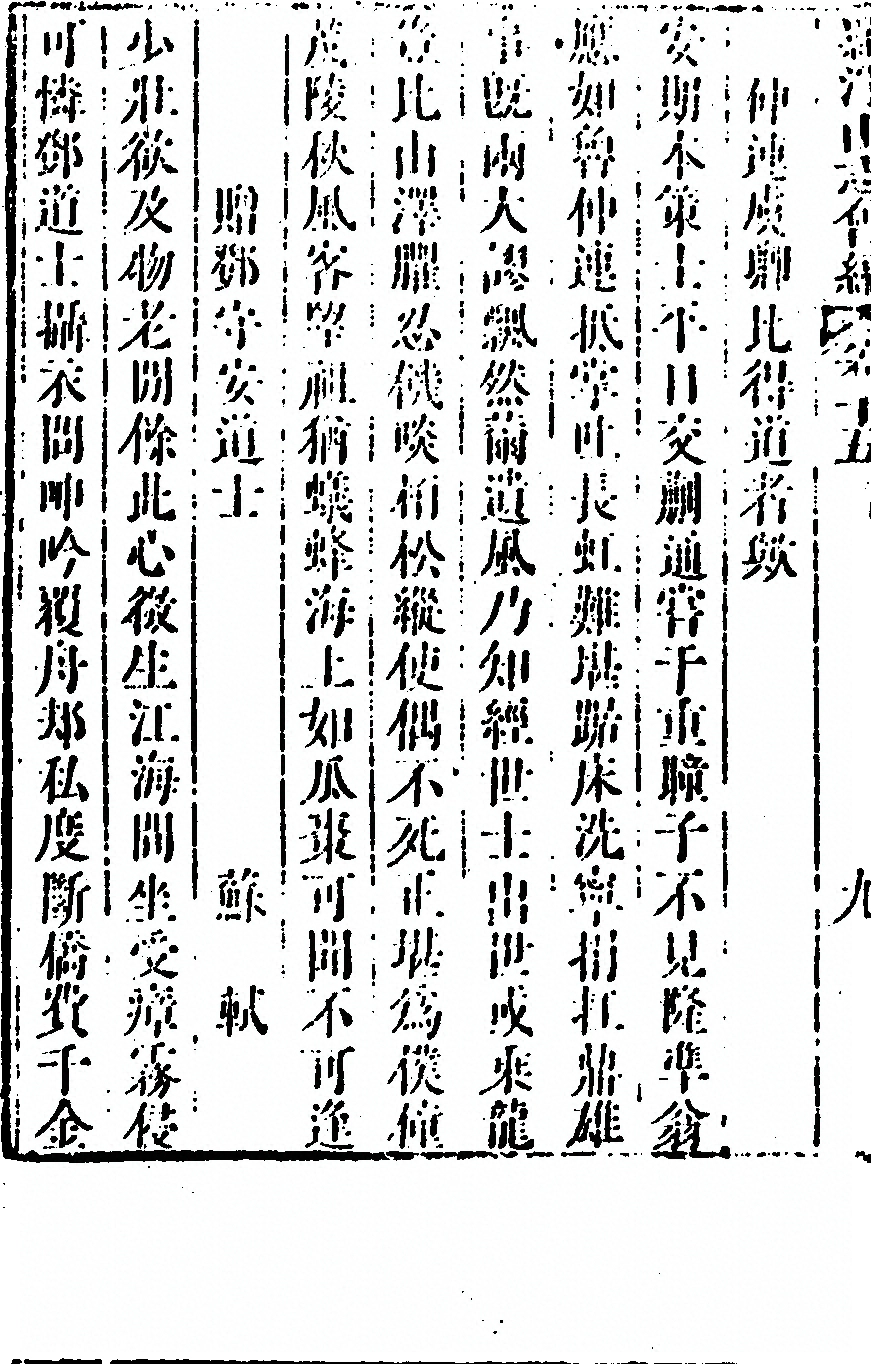 羅浮山志會編 卷十五 九
仲連虞卿比得道者歟
安期本策士平日交蒯通嘗干重瞳子不見隆準翁
應如魯仲連抵掌吐長虹難堪踞床洗寧挹扛鼎雄
事既兩大謬飄然籋遺風乃知經世士出世或乘龍
豈比山澤臞忍飢啖柏松縱使偶不死正堪為僕僮
茂陵秋風客望祖猶蟻蜂海上如瓜棗可聞不可逢
贈鄧守安道士 蘇軾
少壯欲及物老閒餘此心微生江海間坐受瘴霧侵
可憐鄧道士攝衣問呻吟覆舟却私度斷橋費千金